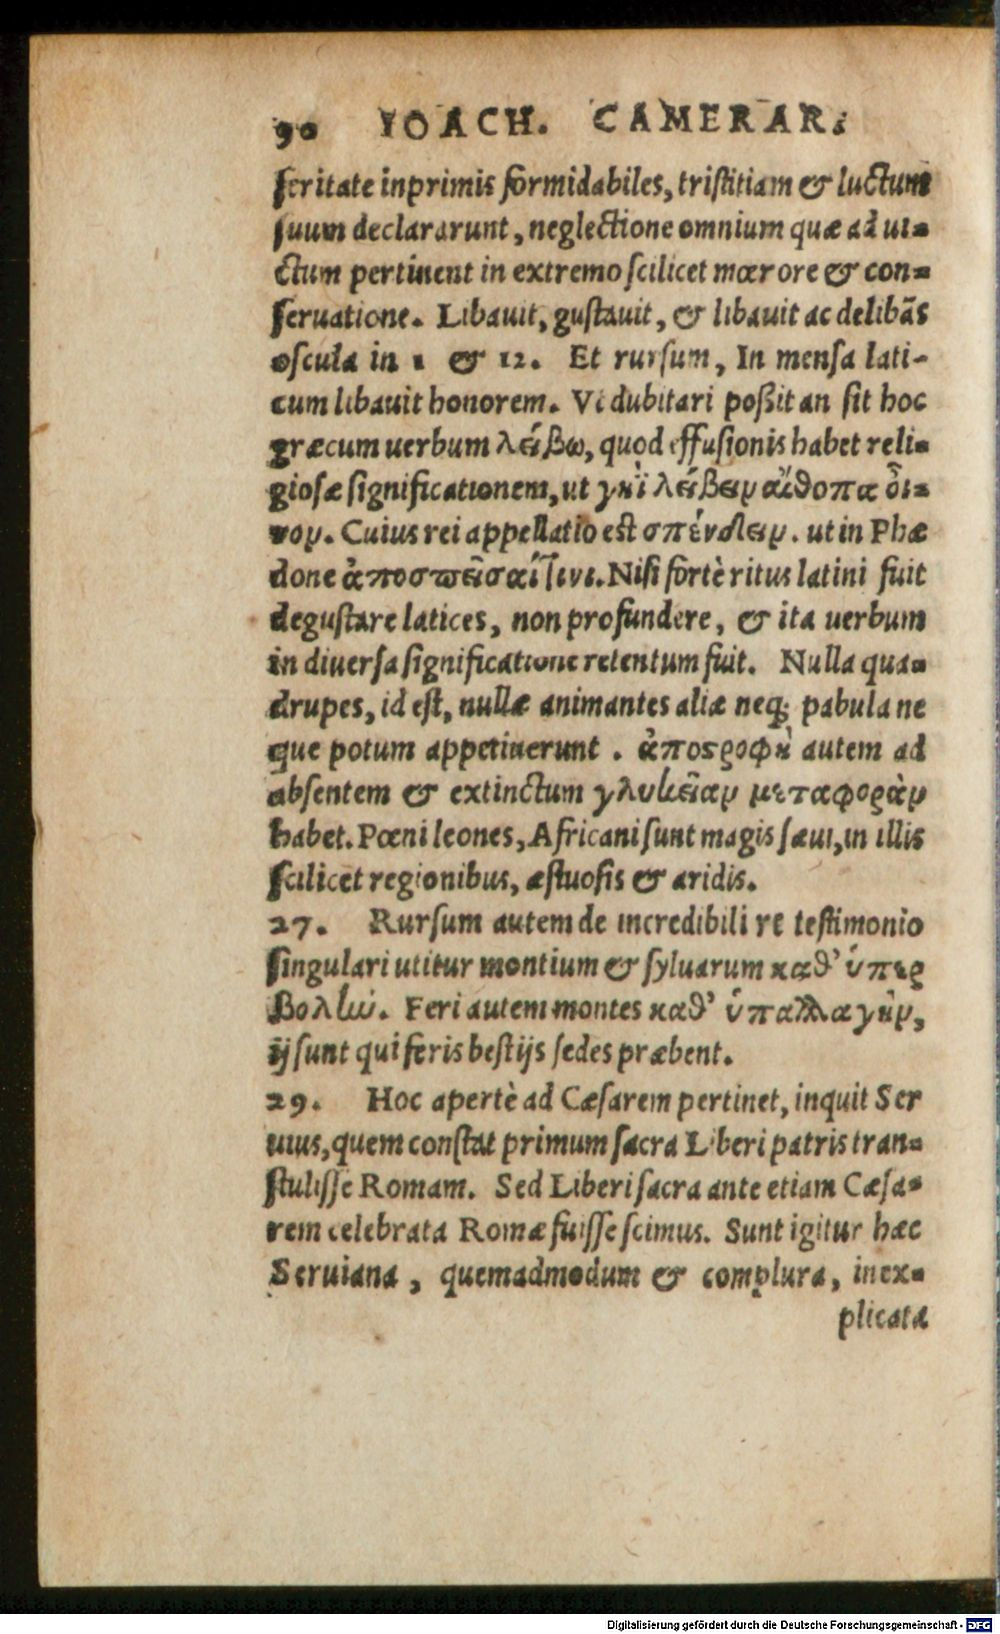 90 IOACH. CAMERAR.
feritate inprimis formidabiles, tristitiam & luctum
suum declararunt, neglectione omnium quæ ad ui-
ctum pertinent in extremo scilicet mœrore & con-
seruatione. Libauit, gustauit, & libauit ac delibãs
oscula in 1 & 12. Et rursum, In mensa lati-
cum libauit honorem. Vt dubitari poßit an sit hoc
græcum uerbum λείβω, quod effusionis habet reli-
giosæ significationem, ut γῆϊ λείβειν αἴθοπα οἶ-
νον. Cuius rei appellatio est σπένδειν. ut in Phæ
done ἀποσπεῖσαί τινι. Nisi fortè ritus latini fuit
degustare latices, non profundere, & ita uerbum
in diuersa significatione retentum fuit. Nulla qua-
drupes, id est, nullæ animantes aliæ neq; pabula ne
que potum appetiuerunt. ἀποστροφὴ autem ad
absentem & extinctum γλυκεῖαν μεταφορὰν
habet. Pœni leones, Africani sunt magis sæui, in illis
scilicet regionibus, æstuosis & aridis.
27. Rursum autem de incredibili re testimonio
singulari utitur montium & syluarum καθ' ὑπερ
βολὼ. Feri autem montes καθ' ὑπαλλαγὴν,
ij sunt qui feris bestijs sedes præbent.
29. Hoc apertè ad Cæsarem pertinet, inquit Ser
uius, quem constat primum sacra Liberi patris tran-
stulisse Romam. Sed Liberi sacra ante etiam Cæsa-
rem celebrata Romæ fuisse scimus. Sunt igitur hæc
Seruiana, quemadmodum & complura, inex-
plicata
Digitalisierung gefördert durch die Deutsche Forschungsgemeinschaft - DFG